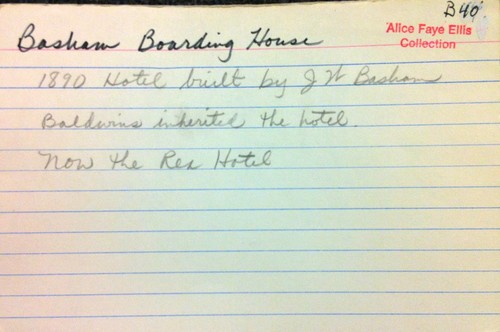 B40
Alice Faye Ellis
Collection
Basham Boarding House
1890 Hotel built by J W Basham
Baldwins inherited the hotel.
Now the Rex Hotel